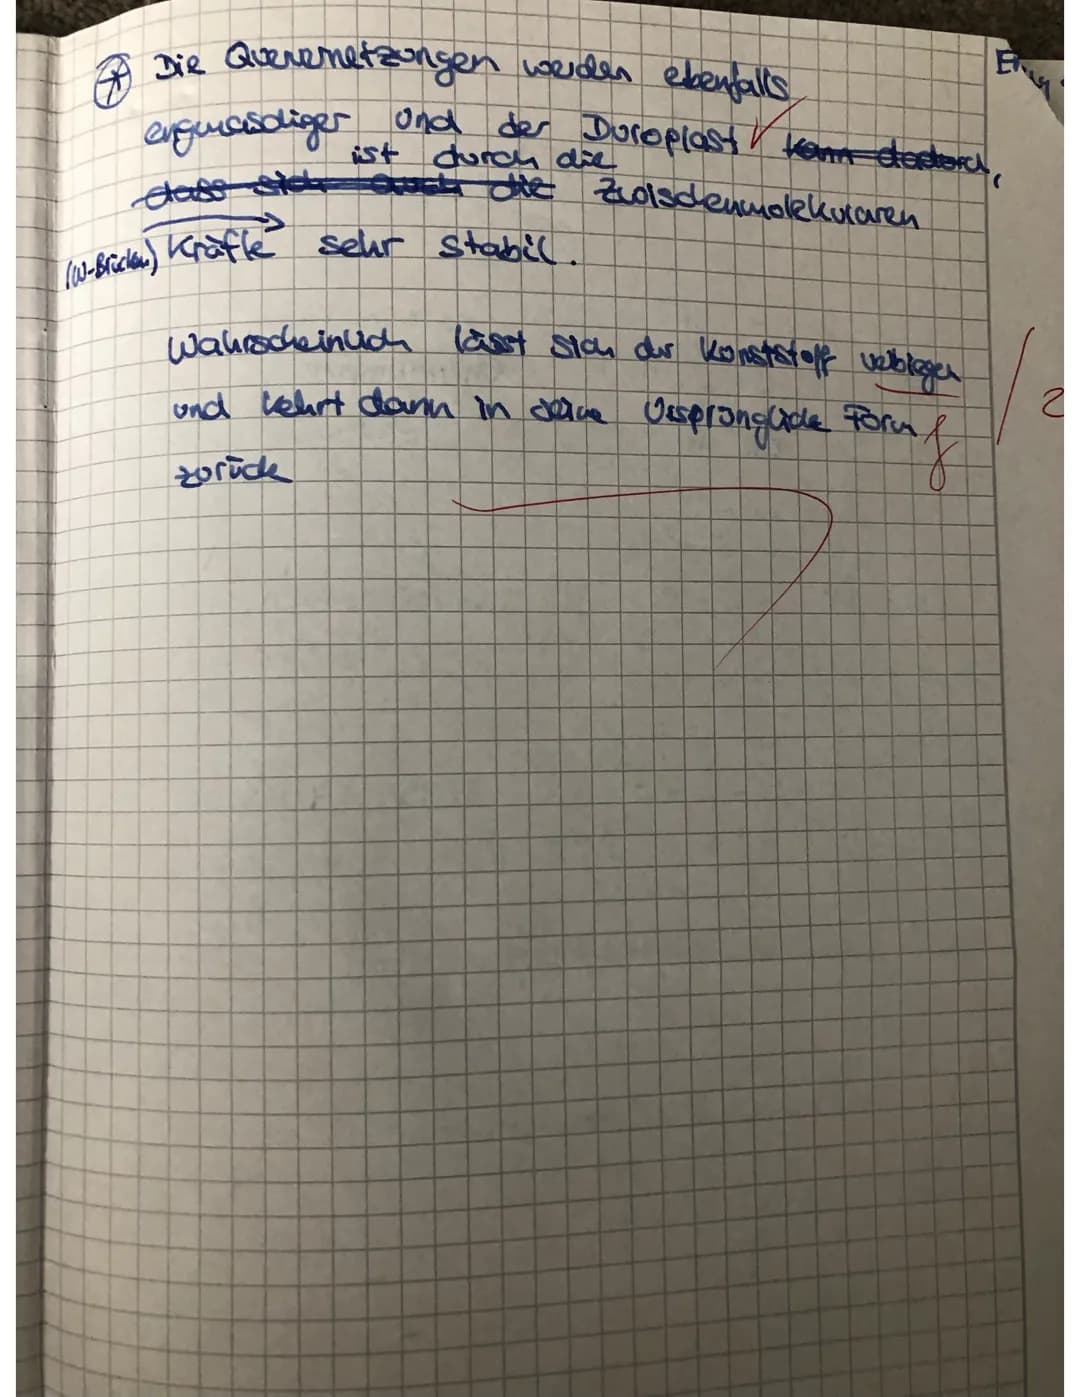 Die Quervernetzungen werden ebenfalls
engmaschiger und der Duroplast kann dadurch,
ist durch die
dass sich auch die Zwischenmolekularen
(W-Brücken) Kräfte sehr stabil.
Wahrscheinlich lässt sich der Kunststoff verbiegen
und kehrt dann in seine Ursprüngliche Form f
zurück